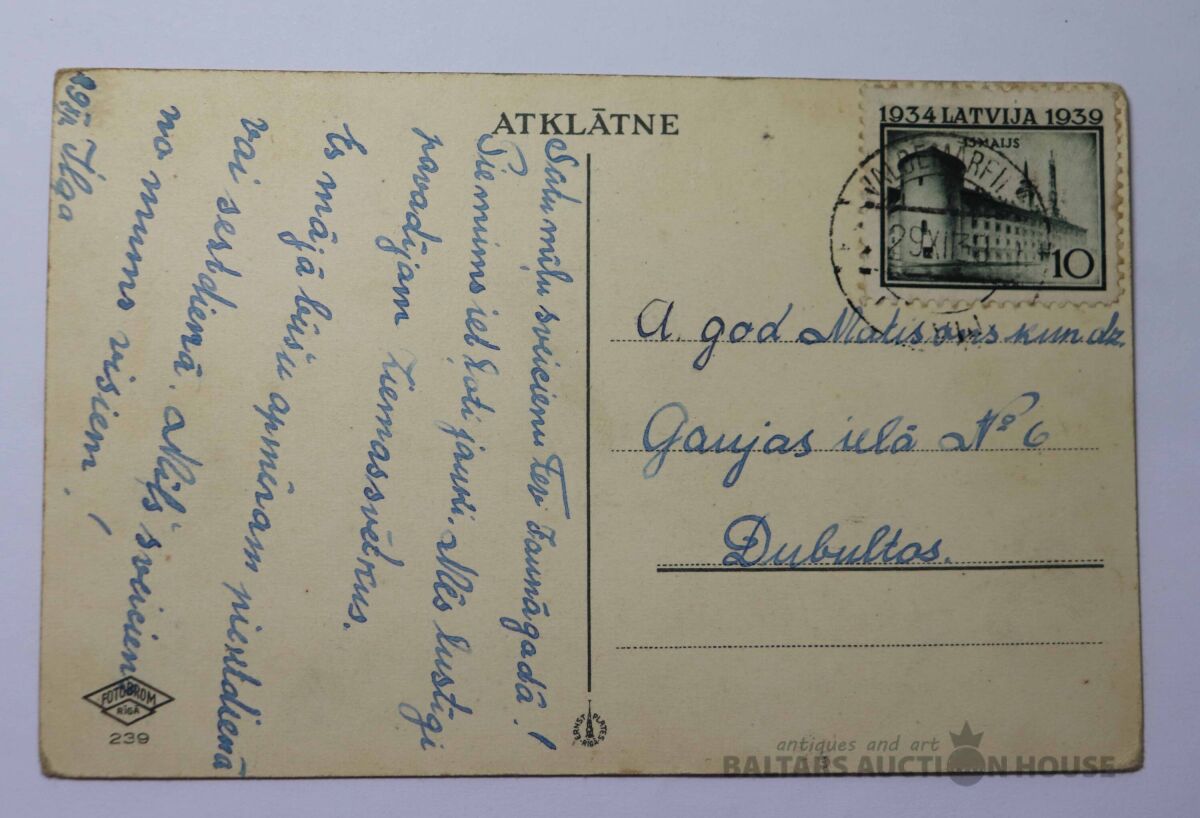 ATKLĀTNE
1934 LATVIJA 1939
15 MAIJS
10
29 XII 39
A. god Matisons kundz.
Gaujas ielā No 6
Dubultos.
Sūtu mīļu sveicienu Tev Jaunāgadā!
Pie mums iet ļoti jauki. Mēs lustīgi
pavadījam Ziemassvētkus.
Es mājā būšu apmēram piektdienā
vai sestdienā. Mīļš sveiciens
no mums visiem!
29 XII Ilga
FOTOBROM
RĪGĀ
239
ERNST PLATES RĪGĀ
antiques and art
BALTARS AUCTION HOUSE